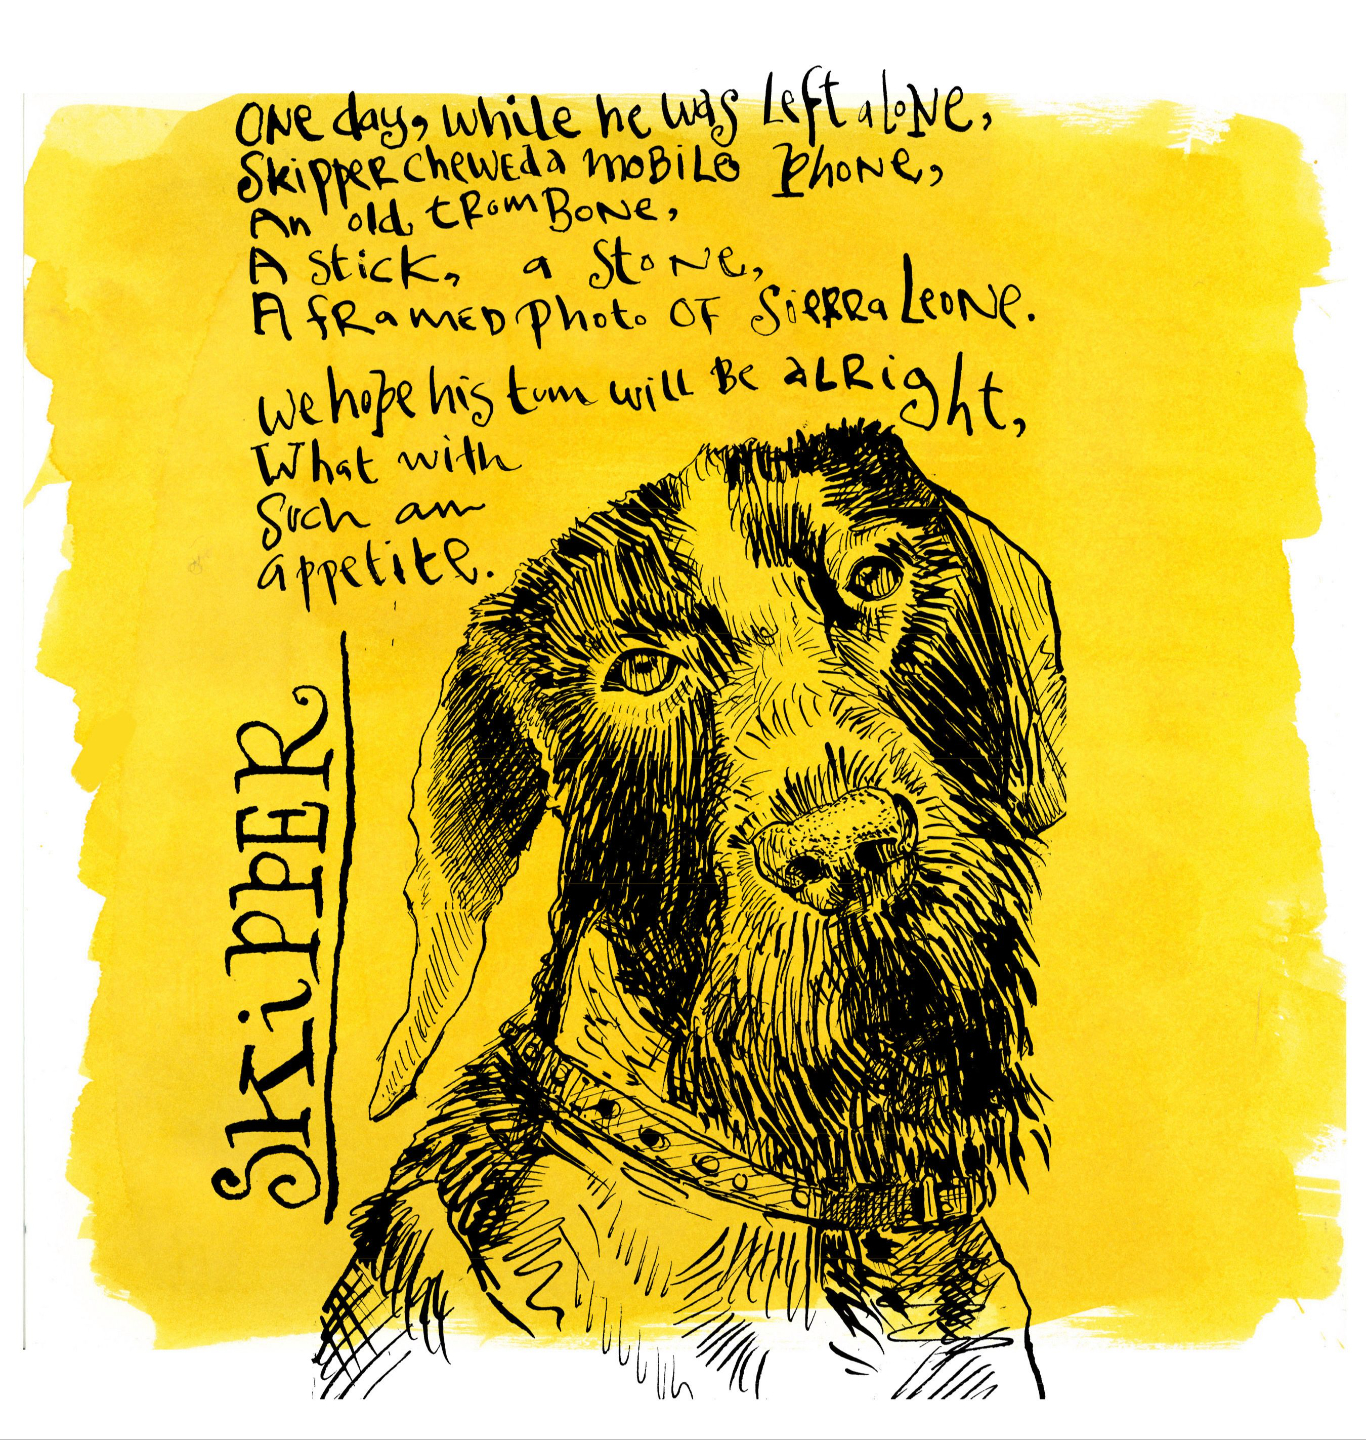 One day, while he was left alone,
Skipper chewed a mobile phone,
An old trombone,
A stick, a stone,
A framed photo of Sierra Leone.
We hope his tum will be alright,
What with
Such an
appetite.
SKiPPER